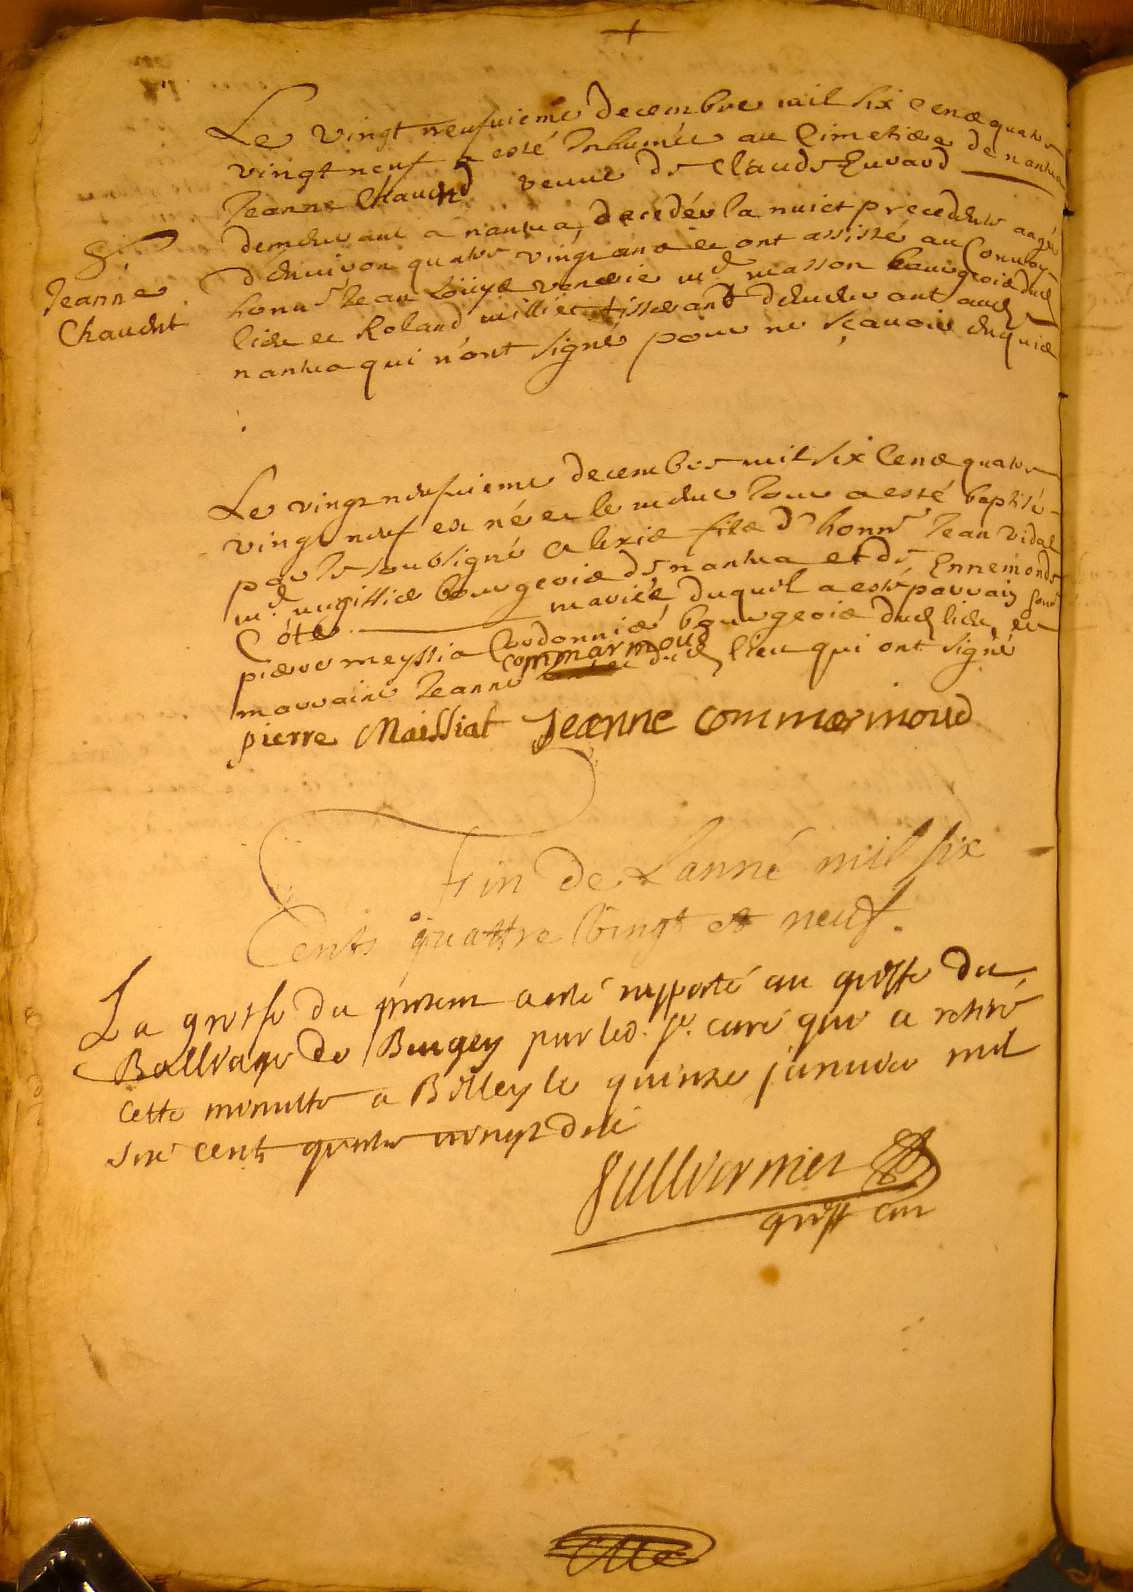 Le vingt neufvieme decembre mil six cens quatre
vingt neuf a esté Inhumée au Cimetiere de nantua
Jeanne Chaudet veuve de Claude Euvard
demeurant a nantua decedée la nuict precedente aagée
d'environ quatre vingt ans et ont assisté au Convoy
honn Jean Louys md masson bourgeois dud
lieu et Roland milliet tisserant demeurant aud
nantua qui n'ont signé pour ne sçavoir enquis
Jeanne
Chaudet
Le vingt neufvieme decembre mil six Cens quatre
vingt neuf est né et le meme Jour a esté baptisé
par le soubsigné Alexis fils d'honn Jean Vidal
md bourgeois de nantua et de Ennemonde
Côte mariés duquel a esté parrain honn
pierre meyssia Cordonnier bourgeois dud lieu et
marraine Jeanne Commarmoud dud lieu qui ont signé
pierre Maissiat Jeanne Commarmoud
Fin de Lanné mil six
Cents quattre Vingt et neuf.
La grosse du present a esté rapporté au greffe du
Balliage de Beugey par led. Sr. curé qui a retiré
cette minutte a Belley le quinze janvier mil
six cents quatre vingt dix
greff